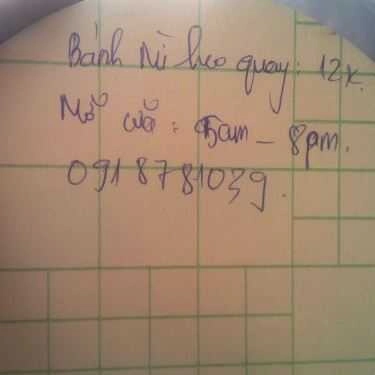 Bánh Mì heo quay: 12k.
Mở cửa: 5am - 8pm.
0918781039.